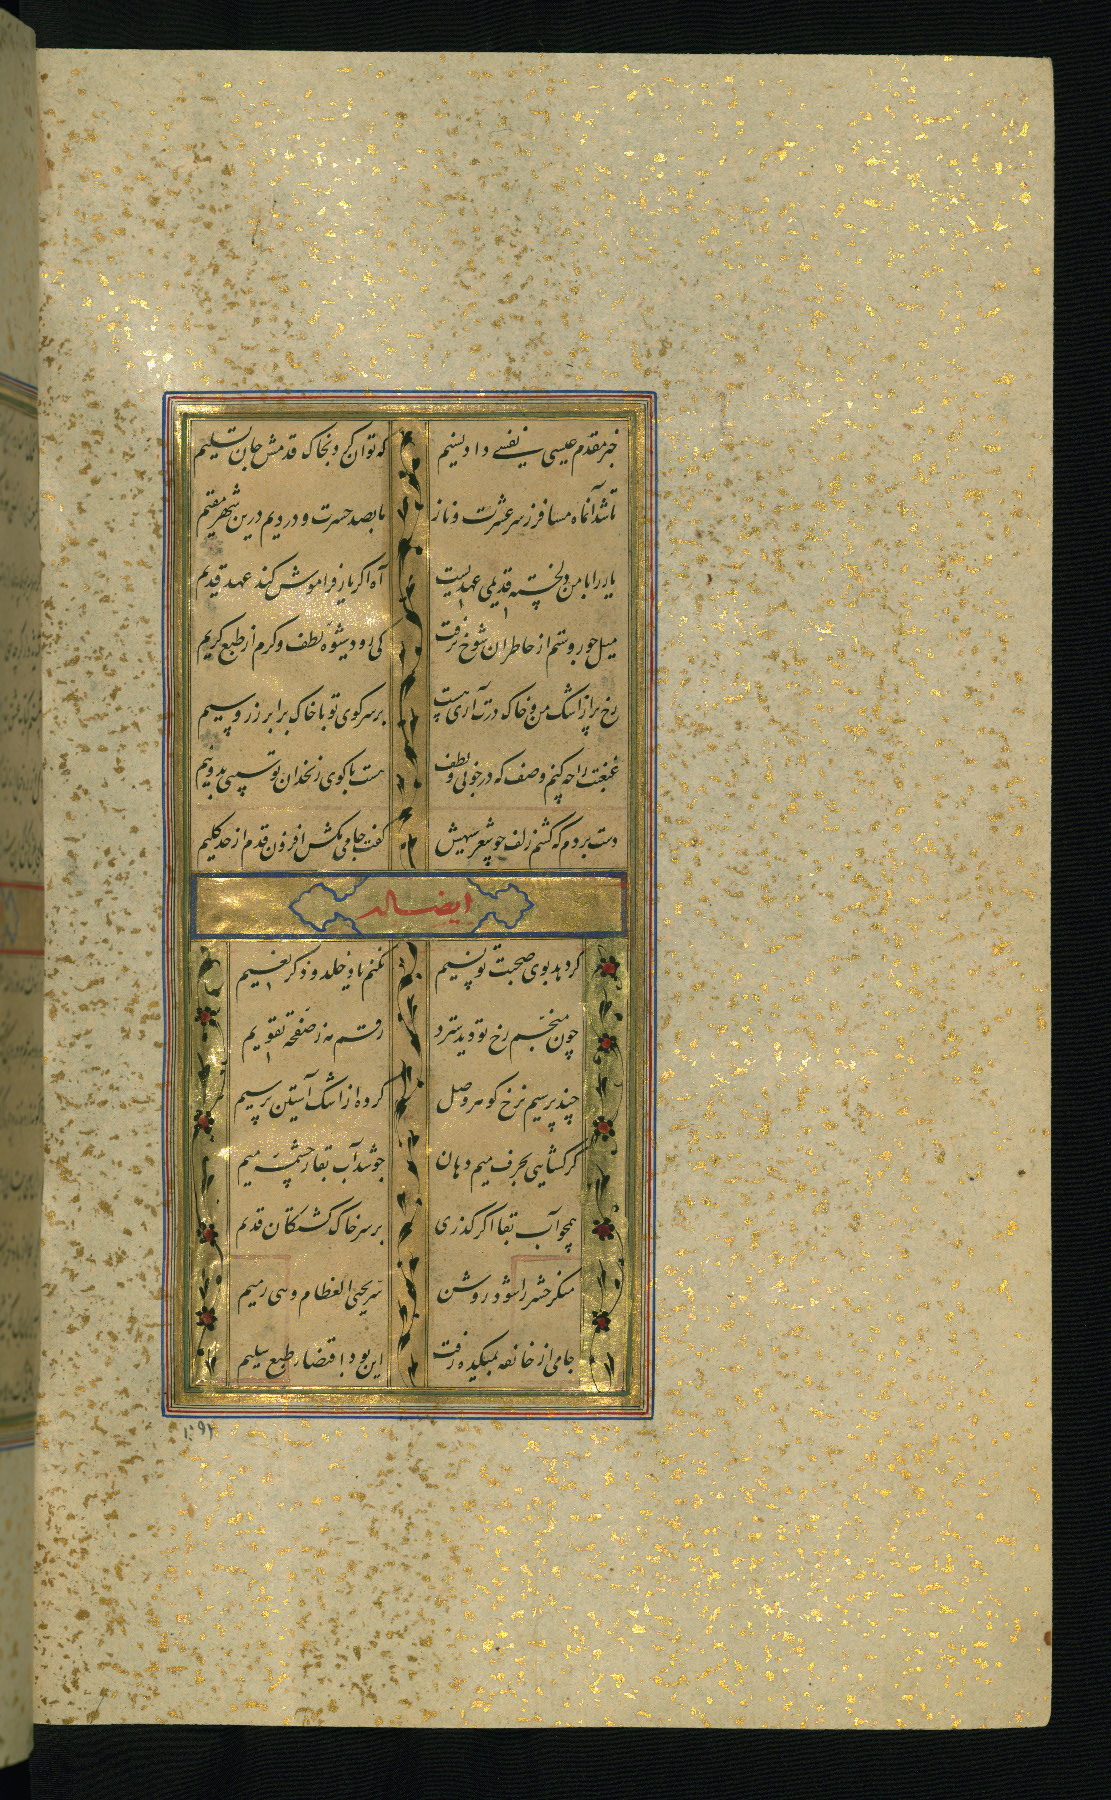 خبر مقدم عیسی نفسی داد نسیم که توان کرد بخاک قدمش جان تسلیم
تا شد آنماه مسافر ز سر عشرت و ناز ما بصد حسرت و دردیم درین شهر مقیم
یار را با من دلخسته قدیمی عهدیست آه اگر باز فراموش کند عهد قدیم
میل جور و ستم از خاطر آن شوخ نرفت کی رود شیوه لطف و کرم از طبع کریم
رخ پر از اشک من و خاک درت آری هست بر سر کوی تو با خاک برابر زر و سیم
غبغبت را چه کنم وصف که در خوبی و لطف هست با کوی زنخدان تو سیبی بدونیم
دست بردم که کشم زلف چو شعر سیهش گفت جامی مکش افزون قدم از حد گلیم
ایضا له
کرد بد بوی صحبت تو نسیم نکنم یاد خلد و ذکر نعیم
چون منجم رخ تو دید سترد رقم مه ز صفحه تقویم
چند پرسیم نرخ گوهر وصل کرده از اشک آستین پر سیم
گر گشایی بحرف میم دهان جوشد آب بقا ز چشمه میم
همچو آب بقا اگر گذری بر سر خاک کشتگان قدم
منکر حشر را شود روشن سر یحیی العظام و هی رمیم
جامی از خانقه بمیکده رفت این بود اقتضای طبع سلیم